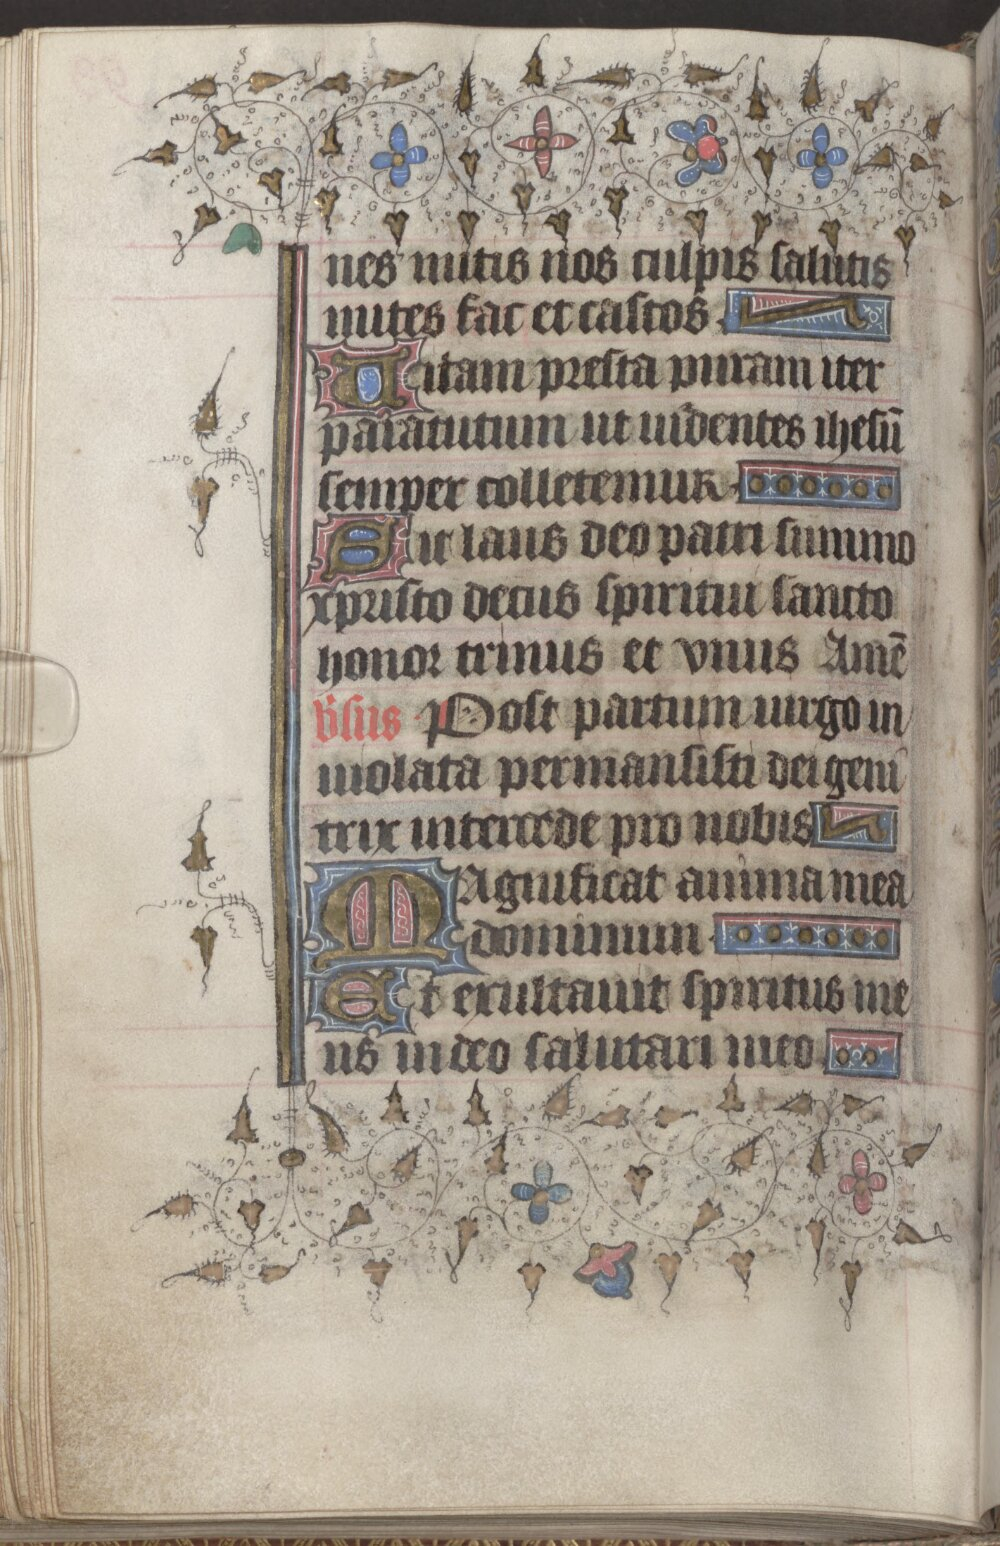 nes mitis nos culpis salutis
mites fac et castos
Vitam presta puram iter
para tutum ut uidentes ihesu᷑
semper colletemur
Sit laus deo patri summo
xpristo decus spiritui sancto
honor trinus et vnus Amē
v̄sus Post partum uirgo in
uiolata permansisti dei geni
trix intercede pro nobis
MAgnificat anima mea
dominum
Et exultauit spiritus me
us in deo salutari meo